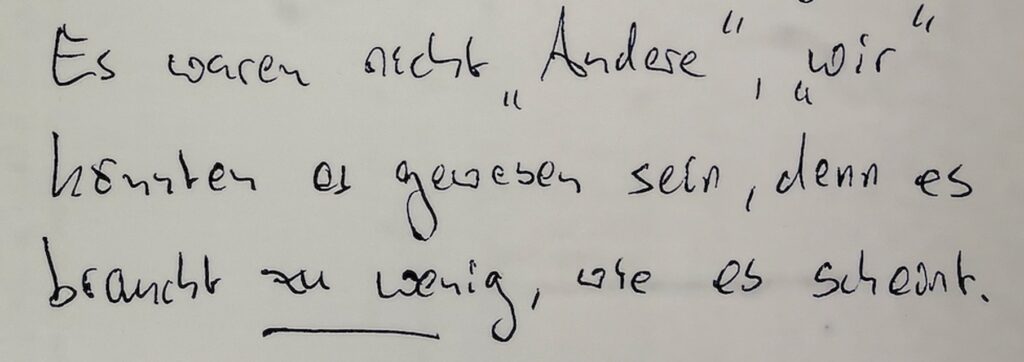 Es waren nicht „Andere“, „wir“
könnten es gewesen sein, denn es
braucht zu wenig, wie es scheint.